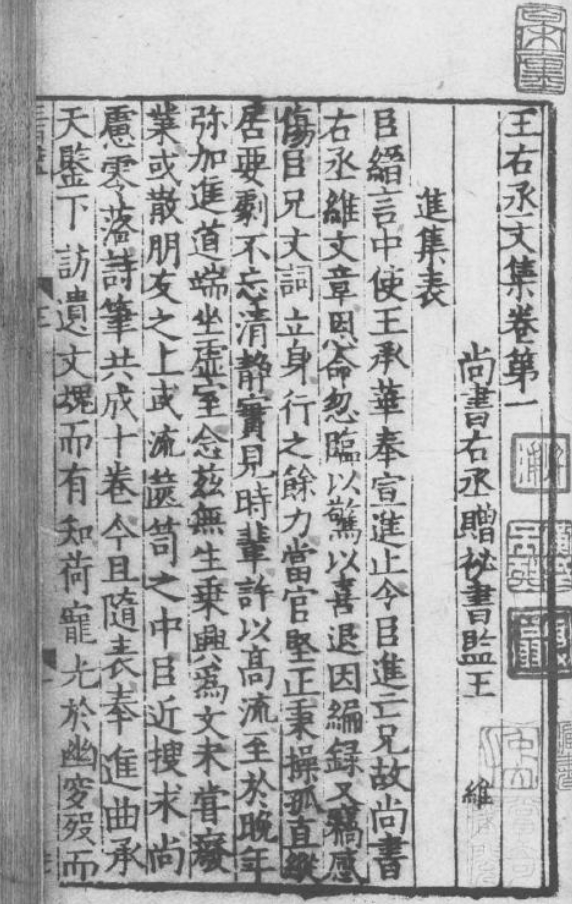 王右丞文集卷第一
尚書右丞贈祕書監王維
進集表
臣縉言中使王承華奉宣進止令臣進亡兄故尚書
右丞維文章恩命忽臨以驚以喜退因編録又竊感
傷臣兄文詞立身行之餘力當官堅正秉操孤直縱
居要劇不忘清静實見時輩許以高流至於晚年
弥加進道端坐虚室念兹無生乗興為文未甞廢
業或散朋友之上或流篋笥之中臣近搜求尚
慮零落詩筆共成十卷今且隨表奉進曲承
天鑒下訪遺文魂而有知荷寵光於幽穸歿而